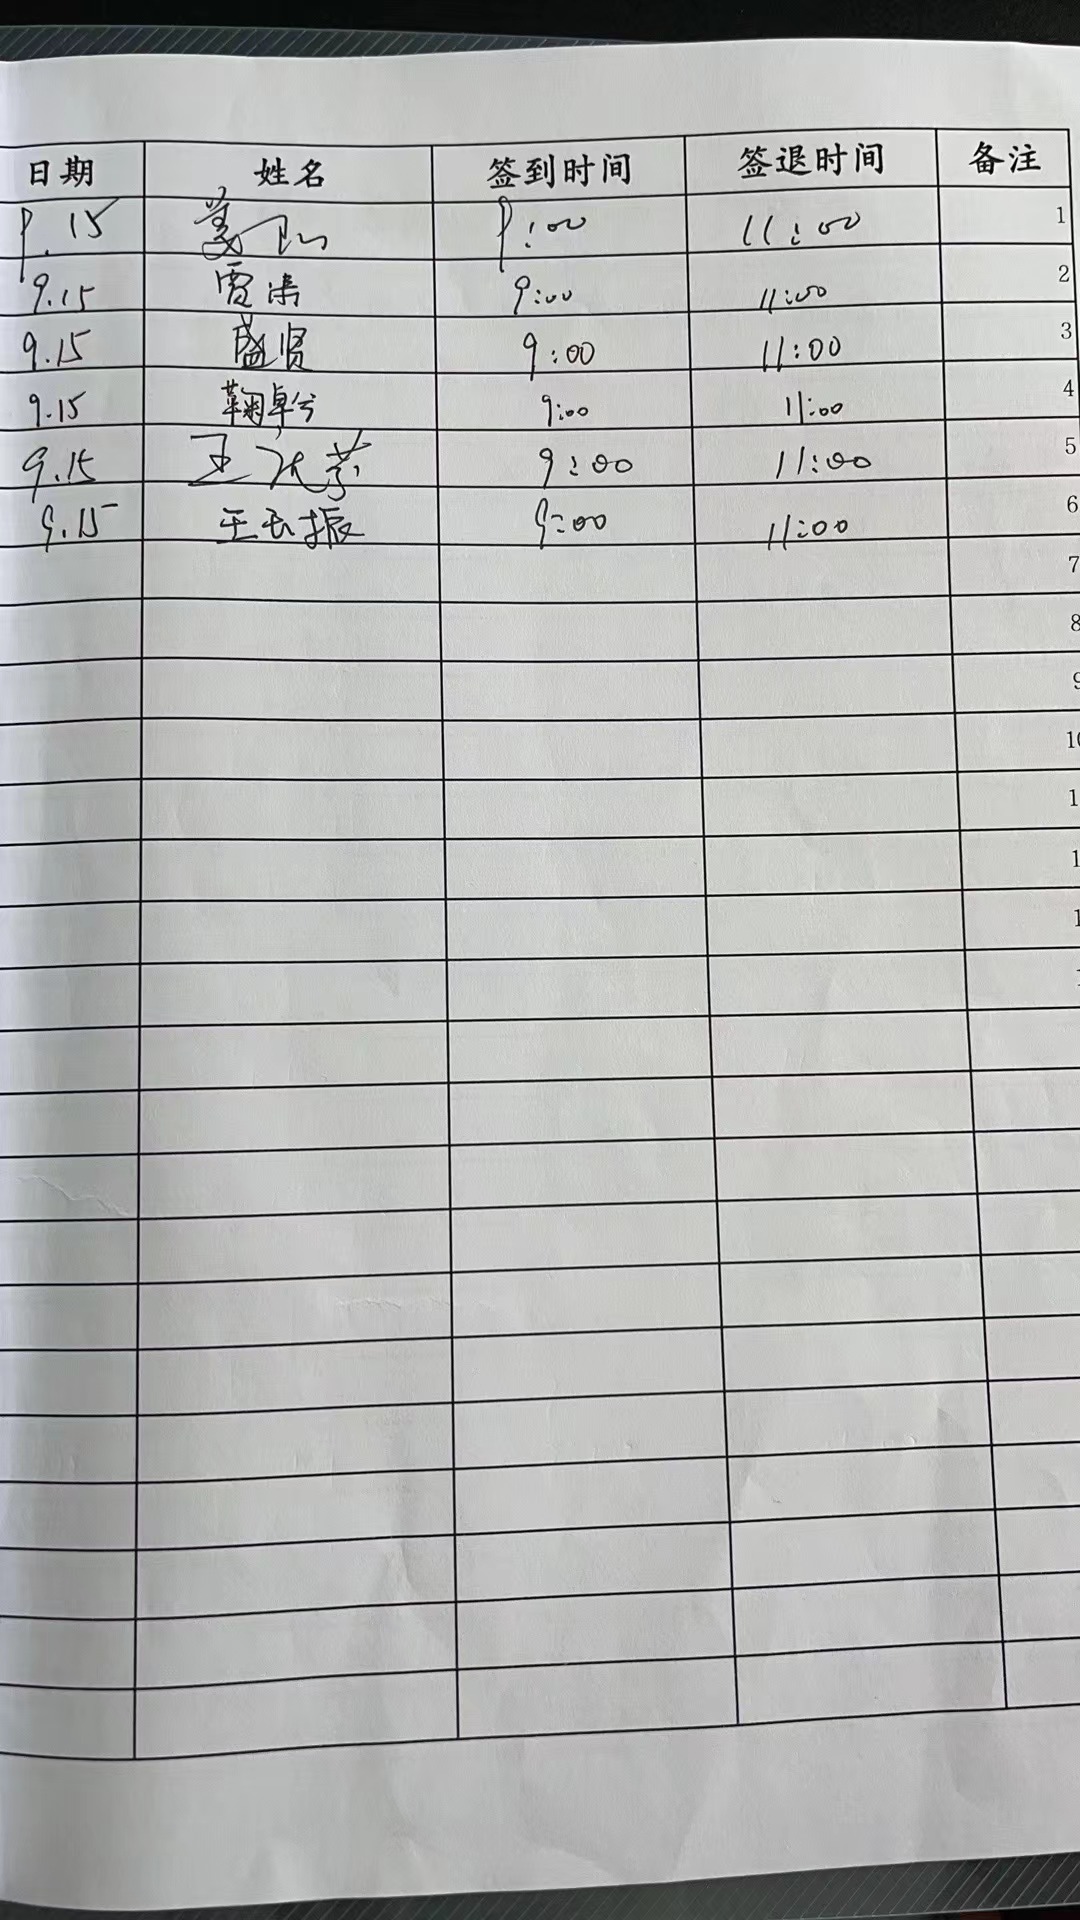 日期 姓名 签到时间 签退时间 备注
9.15 姜 9:00 11:00 1
9.15 雷涛 9:00 11:00 2
9.15 盛贤 9:00 11:00 3
9.15 鞠卓兮 9:00 11:00 4
9.15 王 9:00 11:00 5
9.15 王玉振 9:00 11:00 6
7
8
9
10
1
1
1
1